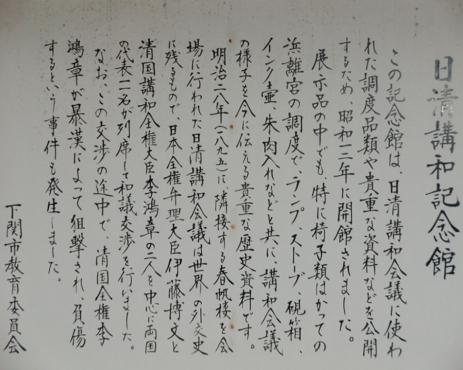 日清講和記念館
この記念館は、日清講和会議に使わ
れた調度品類や貴重な資料などを公開
するため、昭和十二年に開館されました。
展示品の中でも、特に椅子類はかっての
浜離宮の調度で、ランプ、ストーブ、硯箱、
インク壷、朱肉入れなどと共に、講和会議
の様子を今に伝える貴重な歴史資料です。
明治二八年(一八九五)に隣接する春帆楼を会
場に行われた日清講和会議は世界の外交史
に残るもので、日本全権弁理大臣伊藤博文と
清国講和全権大臣李鴻章の二人を中心に両国
の代表十一名が列席して和議交渉を行いました。
なお、この交渉の途中で、清国全権李
鴻章が暴漢によって狙撃され、負傷
するという事件も発生しました。
下関市教育委員会